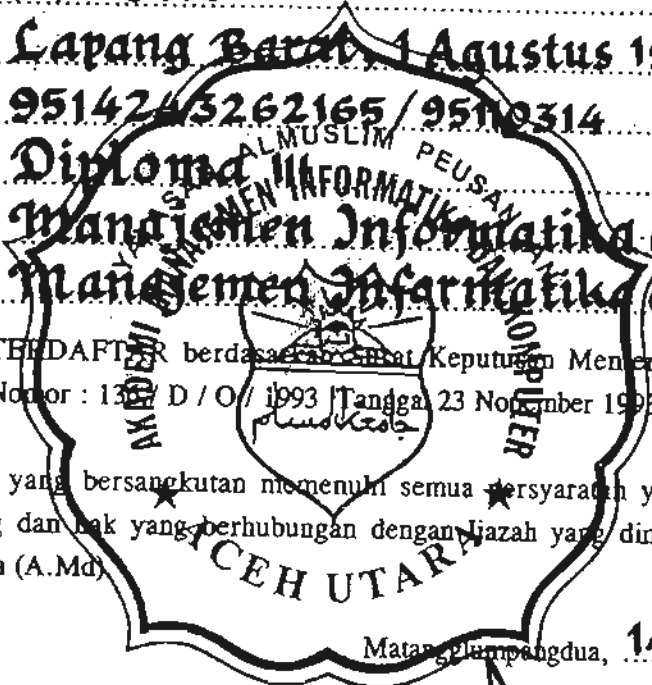 Lapang Barat, 1 Agustus 1
95142 3262165/95110314
Diploma III
Manajemen Informatika
Manajemen Informatika
TERDAFTAR berdasarkan Surat Keputusan Menteri
Nomor : 136 / D / O / 1993 Tanggal 23 Nopember 1993
yang bersangkutan memenuhi semua persyaratan y
dan hak yang berhubungan dengan Ijazah yang dim
(A.Md)
Matangglumpangdua, 14
YAYASAN ALMUSLIM PEUSANGAN
AKADEMI MANAJEMEN INFORMATIKA DAN KOMPUTER
جامعة المسلم
ACEH UTARA